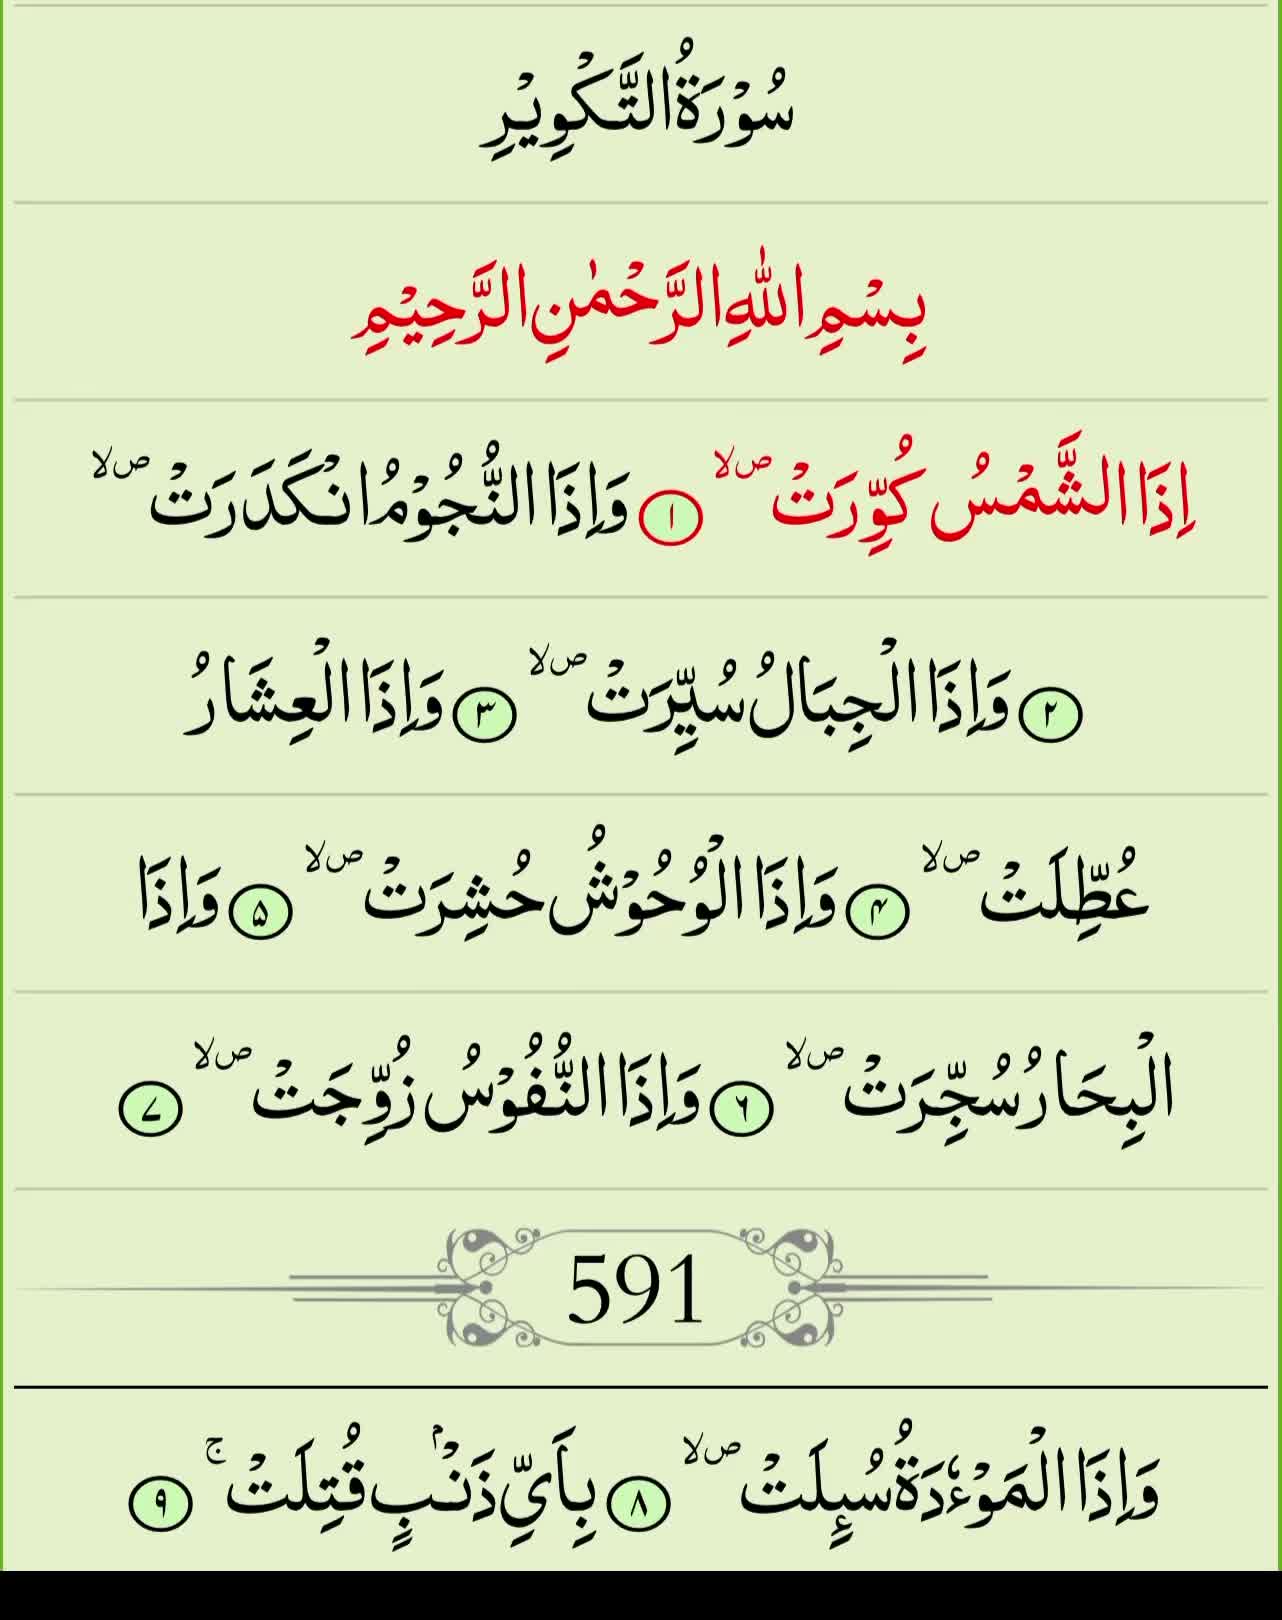 سُوْرَةُ التَّكْوِيْرِ
بِسْمِ اللّٰهِ الرَّحْمٰنِ الرَّحِيْمِ
اِذَا الشَّمْسُ كُوِّرَتْ ۪ۙ ١ وَاِذَا النُّجُوْمُ انْكَدَرَتْ ۪ۙ
٢ وَاِذَا الْجِبَالُ سُيِّرَتْ ۪ۙ ٣ وَاِذَا الْعِشَارُ
عُطِّلَتْ ۪ۙ ۴ وَاِذَا الْوُحُوْشُ حُشِرَتْ ۪ۙ ۵ وَاِذَا
الْبِحَارُ سُجِّرَتْ ۪ۙ ۶ وَاِذَا النُّفُوْسُ زُوِّجَتْ ۪ۙ ۷
591
وَاِذَا الْمَوْءٗدَةُ سُىِٕلَتْ ۪ۙ ۸ بِاَىِّ ذَنْۢبٍ قُتِلَتْ ۚ ۹